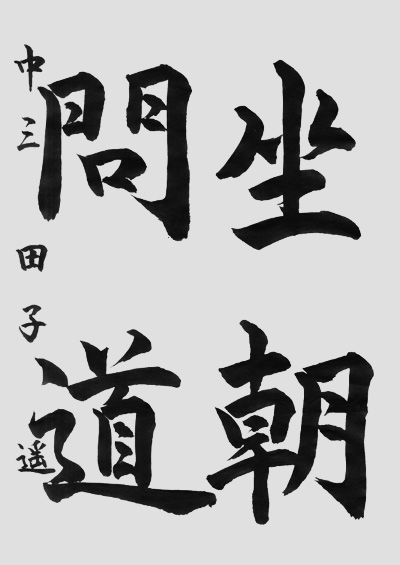 坐朝
問道
中三 田子 遥